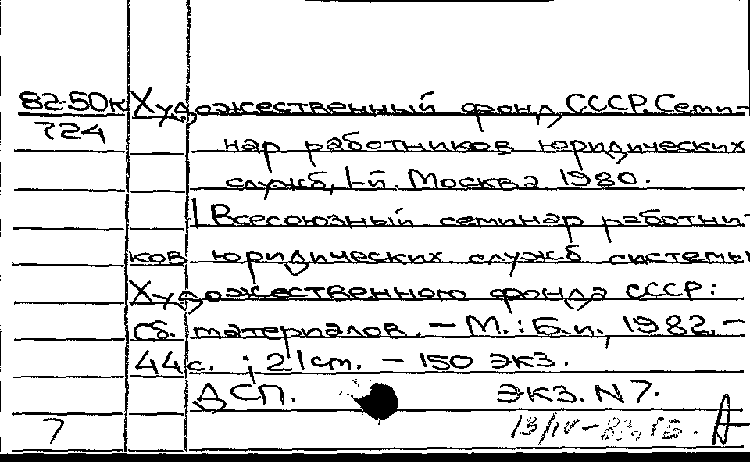 82-50к Художественный фонд СССР. Семи-
724 нар работников юридических
служб, 1-й. Москва 1980.
I Всесоюзный семинар работни-
ков юридических служб системы
Художественного фонда СССР:
Сб. материалов. – М.: Б.и., 1982. –
44с. ; 21 cm. – 150 экз.
ДСП. экз. N 7.
7 13/IV-83г.